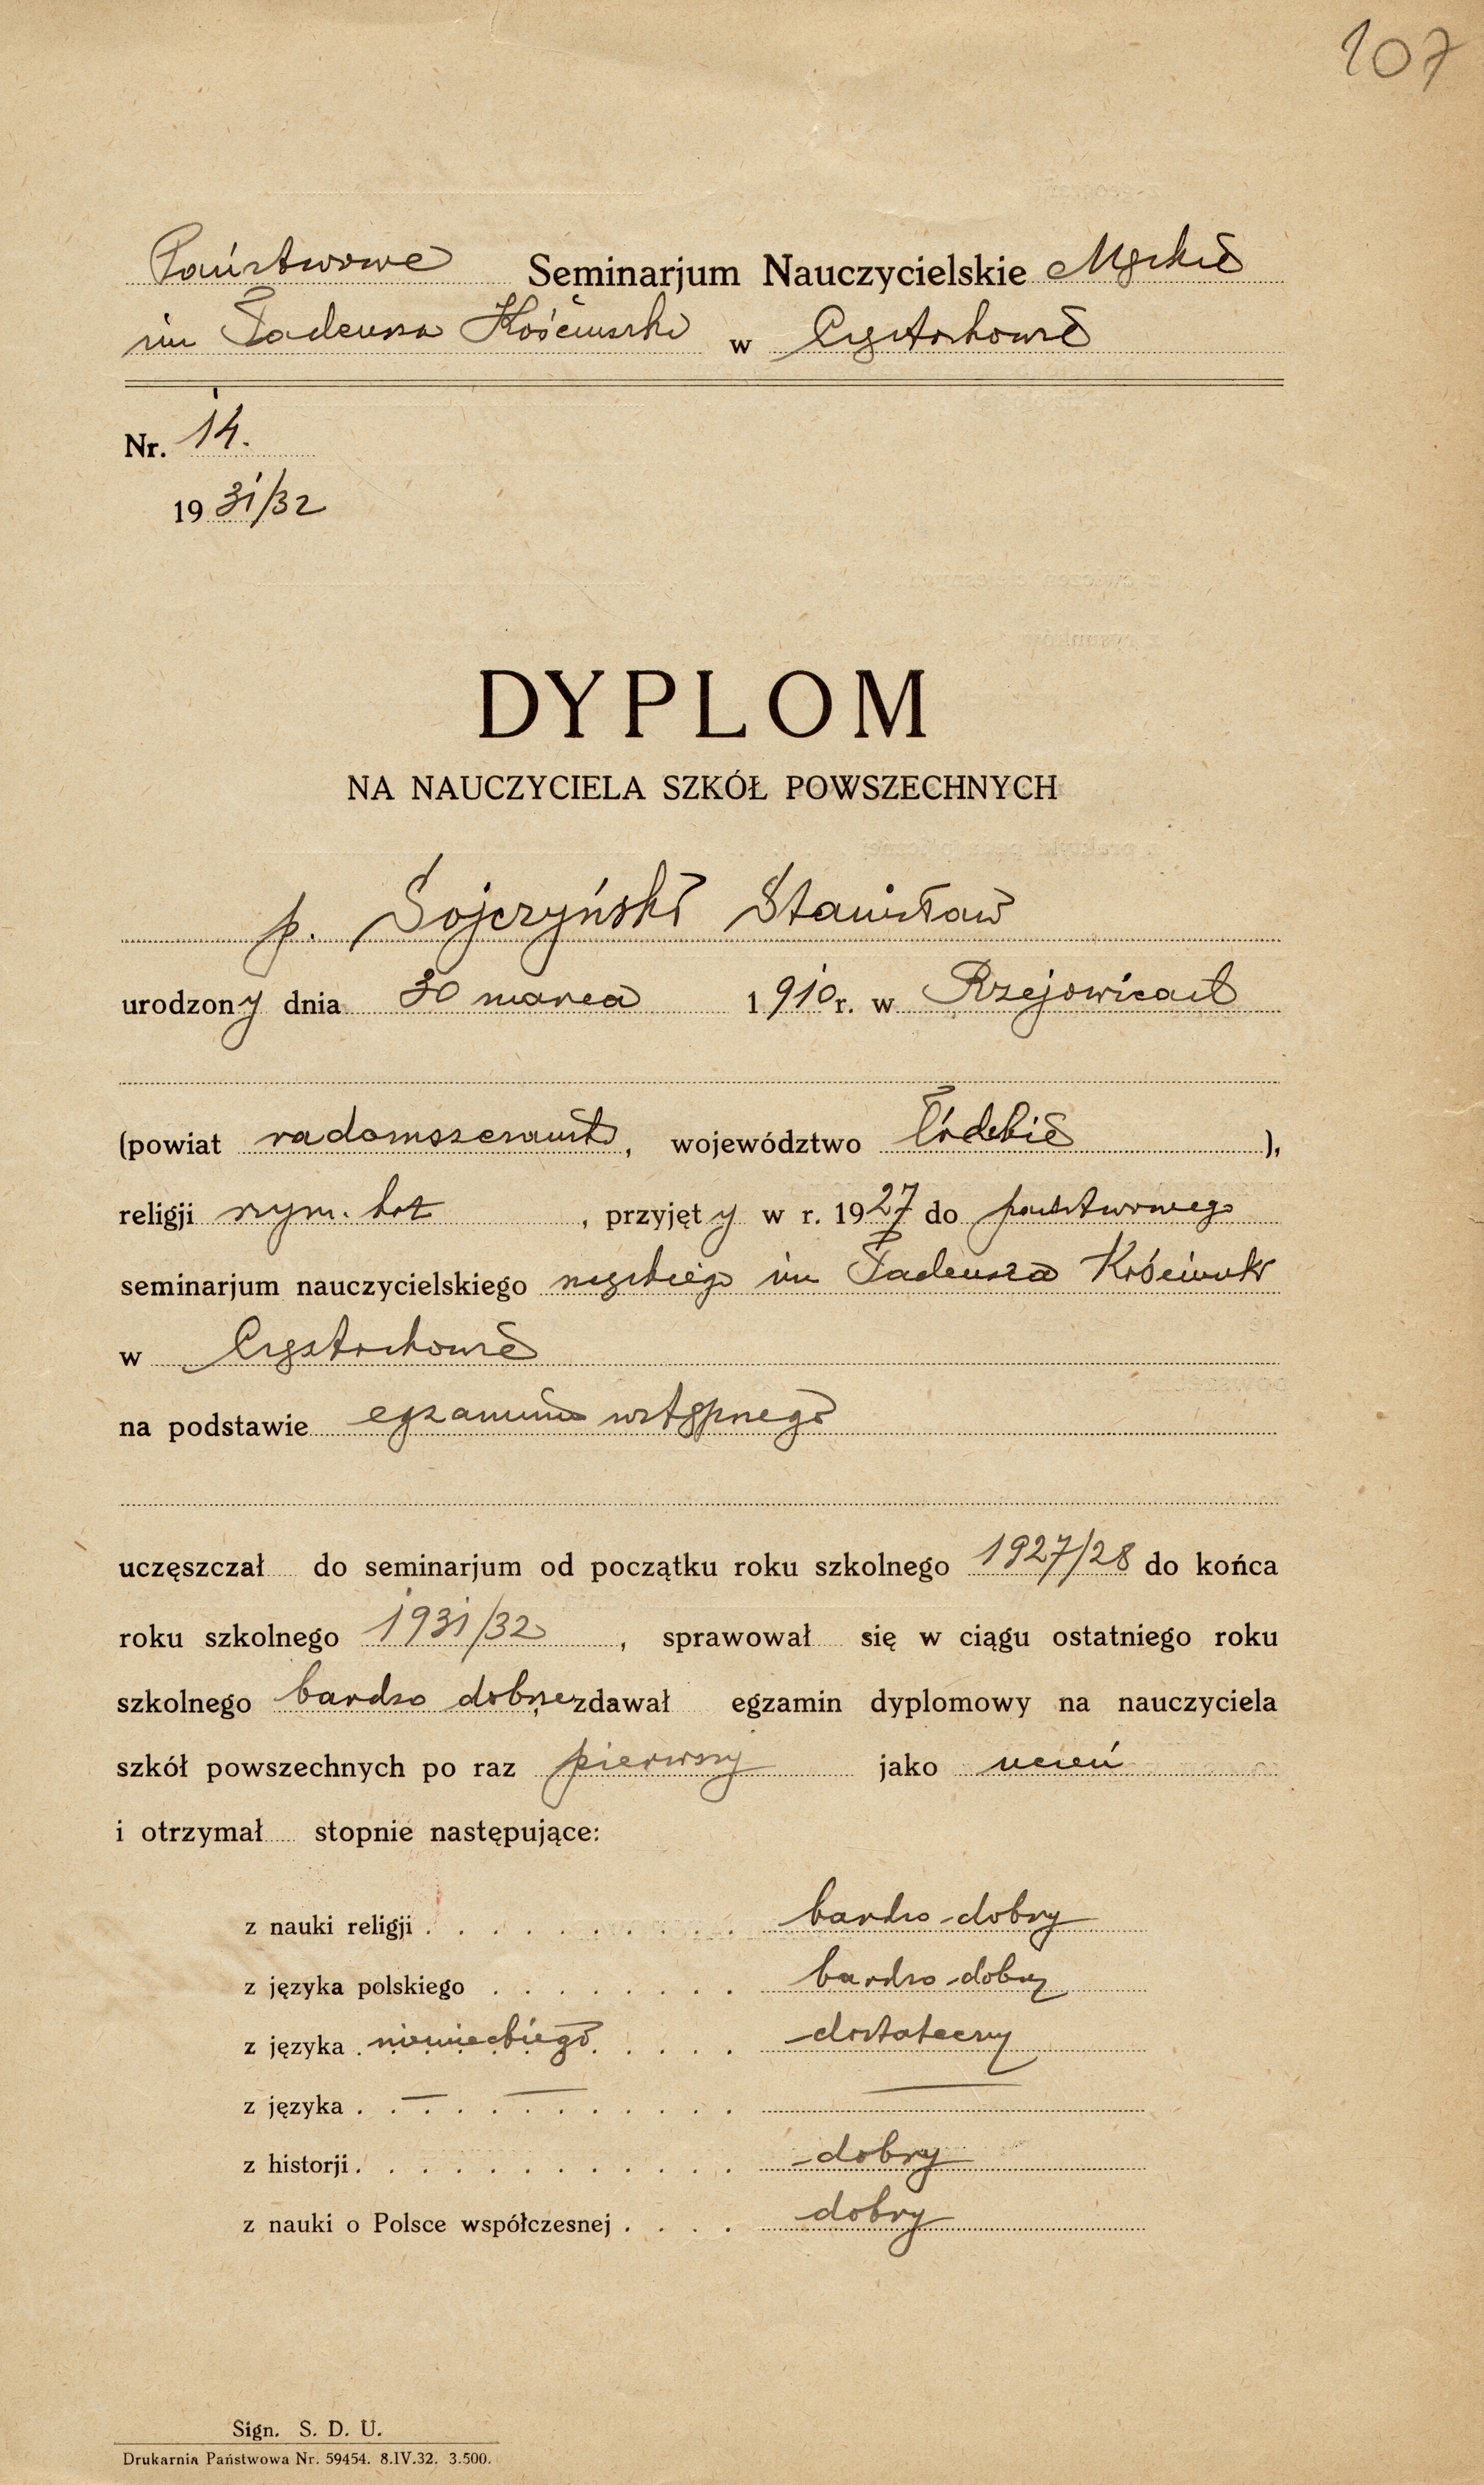 107
Państwowe Seminarjum Nauczycielskie Męskie
im Tadeusza Kościuszki w Częstochowie
Nr. 14.
19 31/32
DYPLOM
NA NAUCZYCIELA SZKÓŁ POWSZECHNYCH
p. Sojczyński Stanisław
urodzony dnia 30 marca 1910 r. w Rzejowicach
(powiat radomszczański, województwo Łódzkie ),
religji rzym. kat , przyjęty w r. 1927 do państwowego
seminarjum nauczycielskiego męskiego im Tadeusza Kościuszki
w Częstochowie
na podstawie egzaminu wstępnego
uczęszczał do seminarjum od początku roku szkolnego 1927/28 do końca
roku szkolnego 1931/32 , sprawował się w ciągu ostatniego roku
szkolnego bardzo dobrze, zdawał egzamin dyplomowy na nauczyciela
szkół powszechnych po raz pierwszy jako uczeń
i otrzymał stopnie następujące:
z nauki religji . . . . . . . . . . bardzo dobry
z języka polskiego . . . . . . . . bardzo dobry
z języka niemieckiego . . . . dostateczny
z języka . . — . . — . . . . . —
z historji . . . . . . . . . . . . dobry
z nauki o Polsce współczesnej . . . . dobry
Sign. S. D. U.
Drukarnia Państwowa Nr. 59454. 8.IV.32. 3.500.